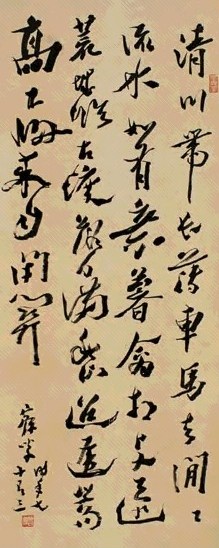 清川帶長薄車馬去閒〻
流水如有意暮禽相與還
荒城臨古渡落日滿秋山迢遞嵩
高下歸來且閉關